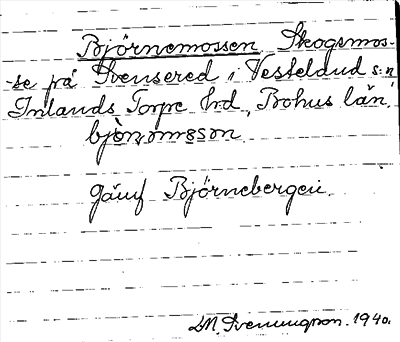 Björnemossen Skogsmos-
-se på Svensered i Vesteldud s:n
Inlands Torpe hrd, Bohus län.
bjö̀nəmåsən
Jämf Björnebergen.
M. Svenungson. 1940.